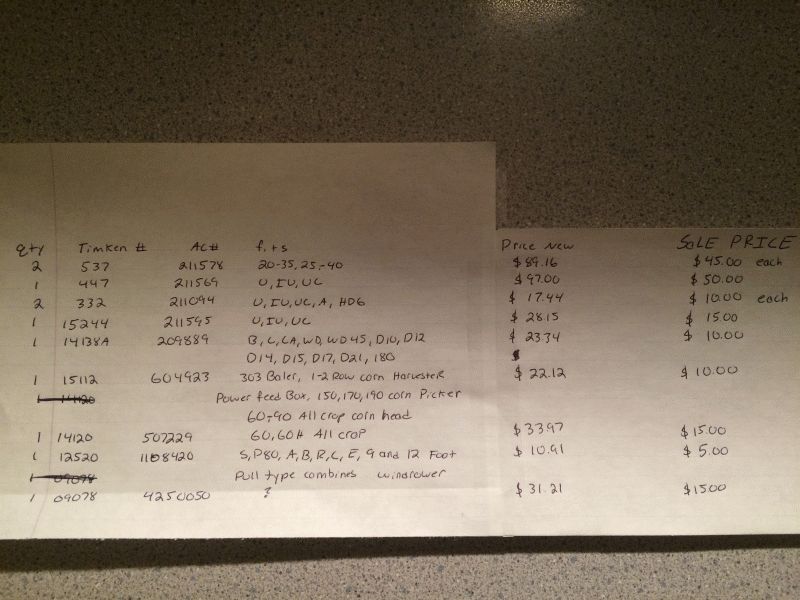 qty Timken # AC# fits Price New SALE PRICE
2 537 211578 20-35, 25-40 $89.16 $45.00 each
1 447 211569 U, IU, UC $97.00 $50.00
2 332 211094 U, IU, UC, A, HD6 $17.44 $10.00 each
1 15244 211595 U, IU, UC $28.15 $15.00
1 14138A 209889 B, C, CA, WD, WD45, D10, D12 $23.34 $10.00
D14, D15, D17, D21, 180 $
1 15112 604923 303 Baler, 1-2 Row corn Harvester $22.12 $10.00
1 14120 Power feed Box, 150, 170, 190 corn Picker
60-90 All crop corn head
1 14120 507229 60, 60H All crop $33.97 $15.00
1 12520 1108420 S, P80, A, B, R, C, E, 9 and 12 Foot $10.91 $5.00
1 Pull type combines windrower
1 09078 4250050 ? $31.21 $15.00